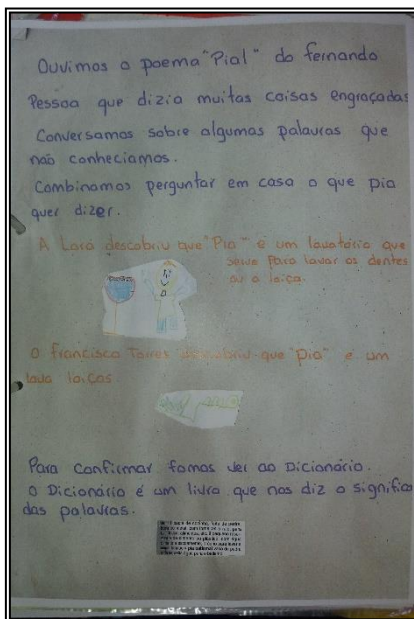 Ouvimos o poema "Pial" do fernando
Pessoa que dizia muitas coisas engraçadas
Conversamos sobre algumas palavras que
não conheciamos.
Combinamos perguntar em casa o que pia
quer dizer.
A Lara descobriu que "Pia" é um lavatório que
serve para lavar os dentes
ou a loiça.
O francisco Torres descobriu que "pia" é um
lava loiças.
Para confirmar fomos ver ao Dicionário.
O Dicionário é um livro que nos diz o significa
das palavras.